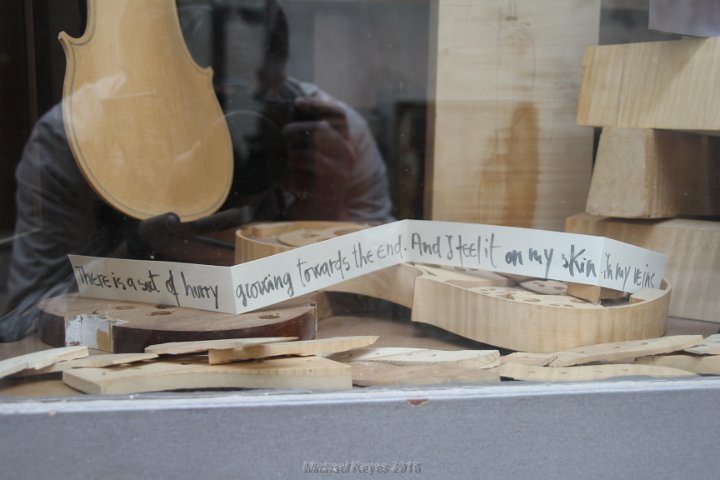 There is a sort of hurry growing towards the end. And I feel it on my skin. In my veins.
Michael Keyes 2016